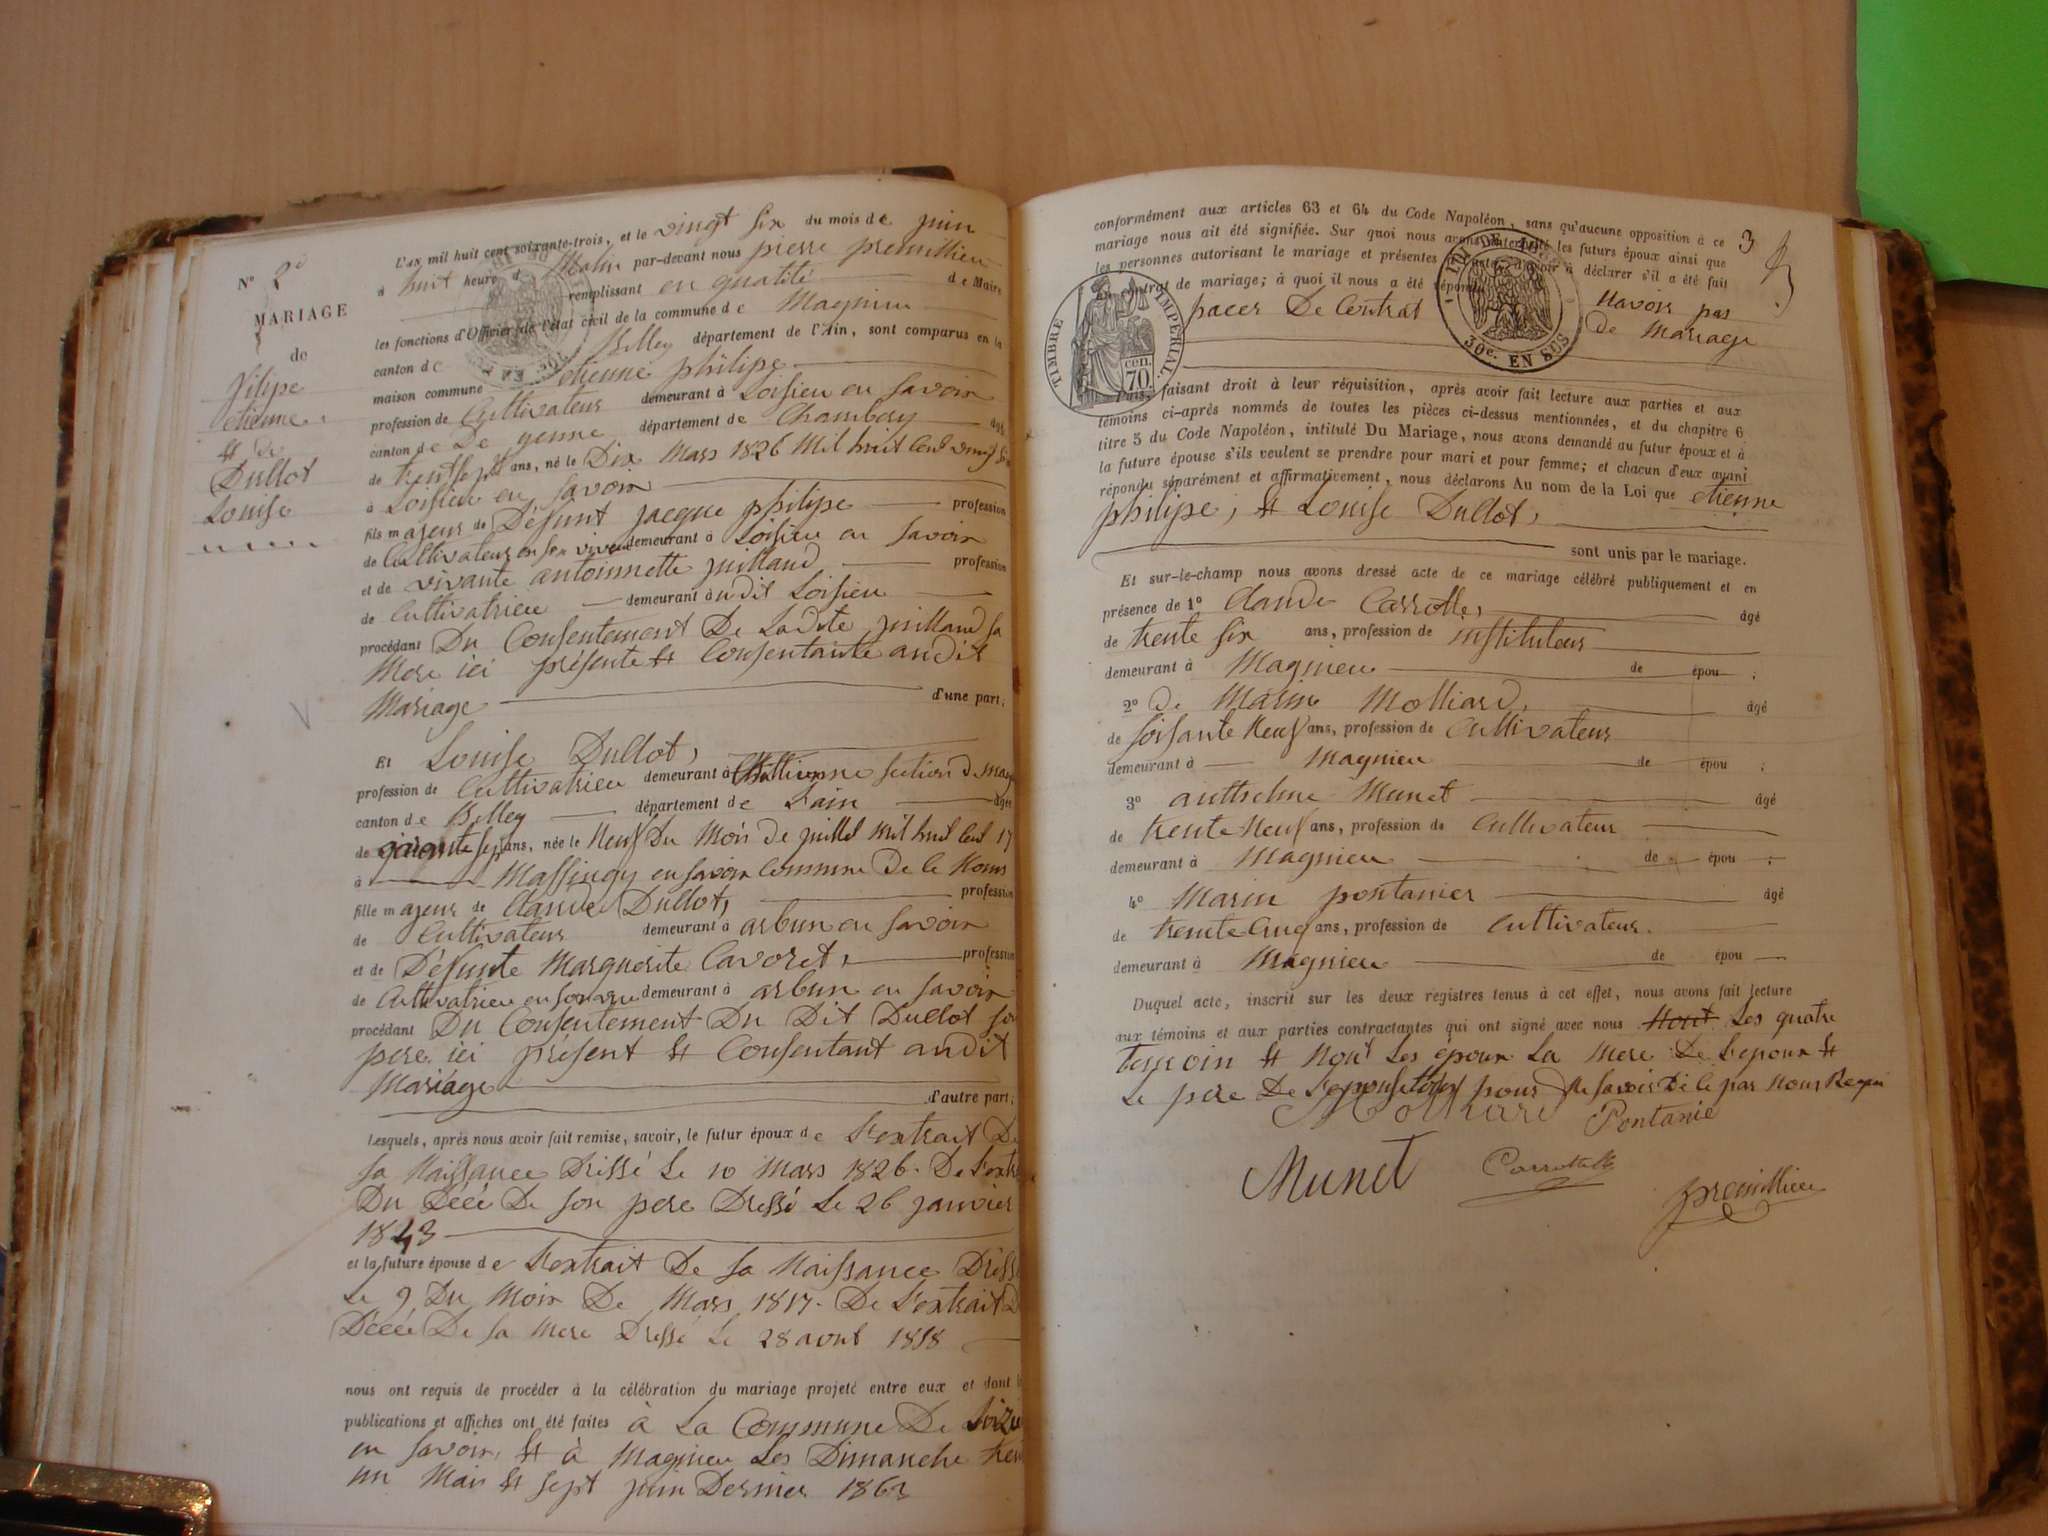 N° 2
MARIAGE
de
filipe
etienne
et de
Dullot
Louise
L'an mil huit cent soixante-trois, et le vingt six du mois de juin
à huit heure d Matin par-devant nous pierre premillieu
remplissant en qualité de Maire
les fonctions d'Officier de l'état civil de la commune de Magnieu
canton de Belley département de l'Ain, sont comparus en la
maison commune etienne philipe
profession de Cultivateur demeurant à Loisieu en Savoir
canton de De yenne département de Chambery âgé
de trentsept ans, né le Dix Mars 1826 Mil huit Cent vingt six
à Loisieu en Savoir
fils majeur de Défunt jacque philipe profession
de Cultivateur en son vivan demeurant à Loisieu en Savoir
et de vivante antoinnette juilland profession
de Cultivatrieu demeurant àudit Loisieu
procédant Du Consentement De Ladite juilland sa
Mere ici présente et Consentante audit
Mariage d'une part;
Et Louise Dullot,
profession de Cultivatrieu demeurant à section de mag
canton de Belley département de L'ain âgée
de sept ans, née le Neuf Du Mois De juillet mil huit Cent 17
à Massingy en Savoir Commune De
fille majeur de Claude Dullot, profession
de Cultivateur demeurant à arbun en Savoir
et de Défunte Marguerite Cavoret, profession
de Cultivatrieu en son demeurant à arbun en Savoir
procédant Du Consentement Du Dit Dullot son
pere ici présent et Consentant audit
Mariage
d'autre part;
Lesquels, après nous avoir fait remise, savoir, le futur époux de L'extrait De
sa Naissance Drissé Le 10 Mars 1826. De L'extr
Du Décé De son pere Dressé Le 26 janvier
1843
et la future épouse de L'extrait De sa Naissance Dréss
Le 9 Du Moir De Mars 1817. De L'extrait D
Décée De sa Mere Dressé Le 28 aout 1858
nous ont requis de procéder à la célébration du mariage projeté entre eux et dont l
publications et affiches ont été faites à La Commune De Loizieu
en Savoir, et à Magnieu Les Dimanche tren
un Mai et sept juin Dernier 1863
3
conformément aux articles 63 et 64 du Code Napoléon, sans qu'aucune opposition à ce
mariage nous ait été signifiée. Sur quoi nous avons interpellé les futurs époux ainsi que
les personnes autorisant le mariage et présentes à déclarer s'il a été fait
un contrat de mariage; à quoi il nous a été répondu Navoir pas
pacer De Contrat de Mariage
TIMBRE IMPERIAL
70 cen.
30c. EN SUS
Puis, faisant droit à leur réquisition, après avoir fait lecture aux parties et aux
témoins ci-après nommés de toutes les pièces ci-dessus mentionnées, et du chapitre 6
titre 5 du Code Napoléon, intitulé Du Mariage, nous avons demandé au futur époux et à
la future épouse s'ils veulent se prendre pour mari et pour femme; et chacun d'eux ayant
répondu séparément et affirmativement, nous déclarons Au nom de la Loi que etienne
philipe, et Louise Dullot,
sont unis par le mariage.
Et sur-le-champ nous avons dressé acte de ce mariage célébré publiquement et en
présence de 1° Claude Carrotte, âgé
de trente six ans, profession de instituteur
demeurant à Magnieu de épou ;
2° de Marin Molliard, âgé
de soisante Neuf ans, profession de Cultivateur
demeurant à Magnieu de épou ;
3° anthelme Munet âgé
de trente Neuf ans, profession de Cultivateur
demeurant à Magnieu de épou ;
4° Marin pontanier âgé
de trente Cinq ans, profession de Cultivateur.
demeurant à Magnieu de épou
Duquel acte, inscrit sur les deux registres tenus à cet effet, nous avons fait lecture
aux témoins et aux parties contractantes qui ont signé avec nous Nont Les quatre
temoin et Nont Les époux La Mere De L'epoux et
Le pere De L'epouse pour Ne savoir De ce par Nous Requi
Molliard Pontanie
Munet Carrotte premillieu